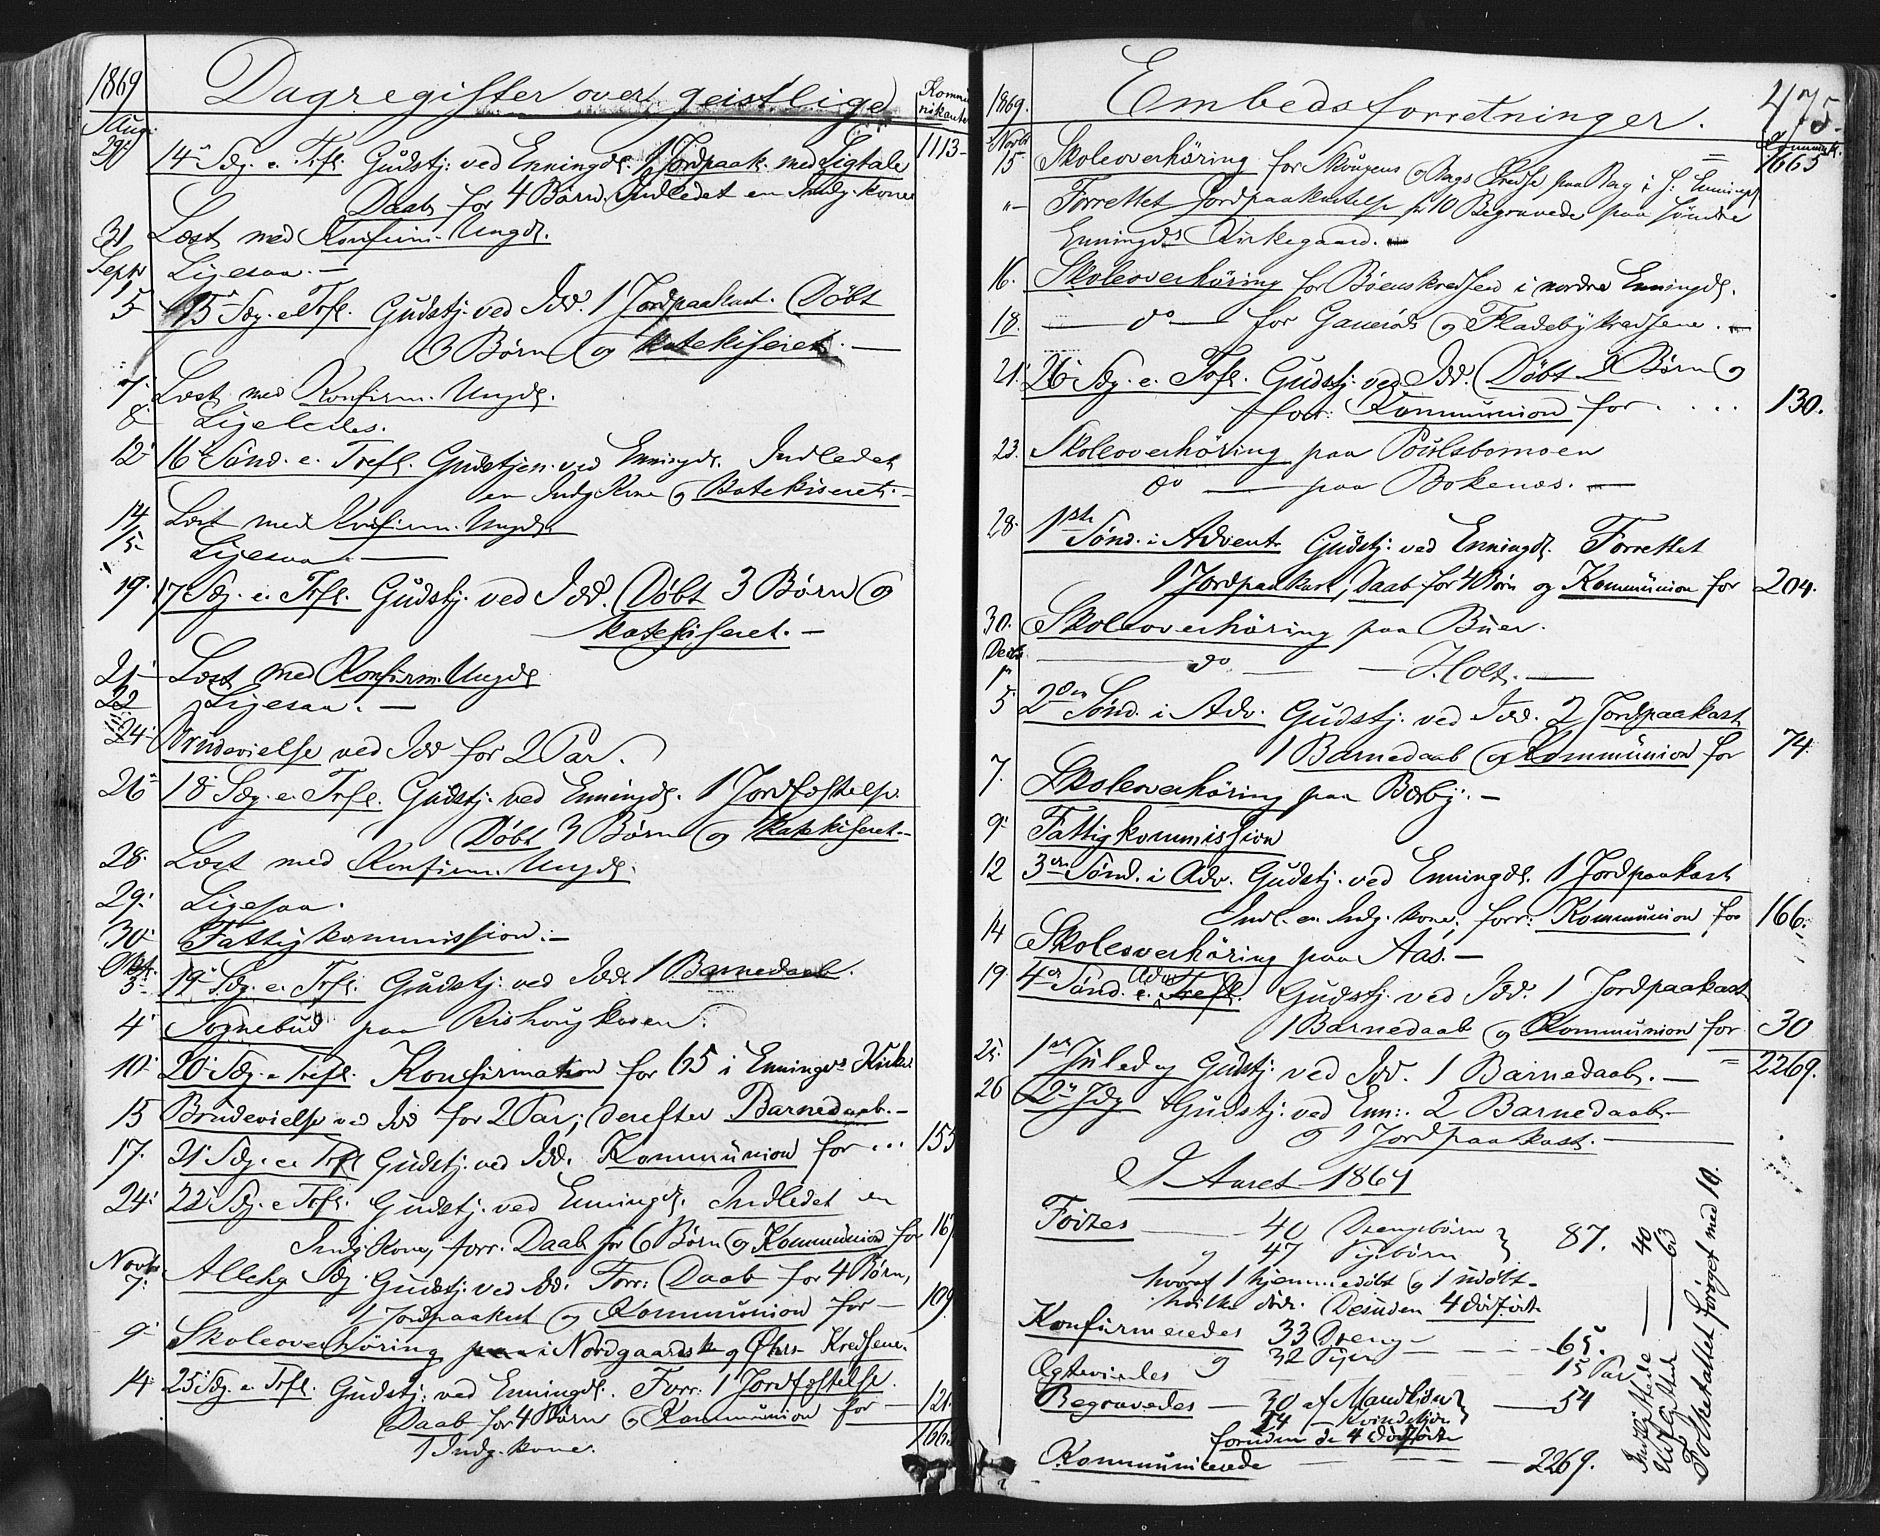 1869 Dagregister over geistlige Kommu
nikanter
Aug:
29. 14 Søg. e. Trfl. Gudstj. ved Enningdl. 1 Jordpaak. med Ligtale 1113
Daab for 4 Børn, Indledet en Indg. kone
31 Læst med Konfirm. Ungd.
Septr
1 Ligesaa. —
5 15 Søg. e. Trfl. Gudstj. ved Idd. 1 Jordpaakast. Døbt
3 Børn og katekiseret. —
7. Læst med Konfirm. Ungd.
8. Ligeledes.
12 16 Sønd. e. Trefl. Gudstjen. ved Enningd. Indledet
en Indg Kone og Katekiseret. —
14 Læst med Konfirm. Ungd.
15 Ligesaa. —
19. 17 Søg. e. Trfl. Gudstj. ved Idd. Døbt 3 Børn og
katekiseret. —
21 Læst med Konfirm. Ungd
22 Ligesaa. —
24. Brudevielse ved Idd for 2 Par.
26 18 Søg. e. Trfl. Gudstj. ved Enningd. 1 Jordfæstelse.
Døbt 3 Børn og katekiseret —
28. Læst med Konfirm. Ungd.
29. Ligesaa.
30. Fattigkommission. —
Oktr.
3. 19 Søg. e. Trfl. Gudstj. ved Idd. 1 Barnedaab.
4 Sognebud paa
10. 20 Søg. e Trefl. Konfirmation for 65 i Enningds Kirke
15 Brudevielse ved Idd for 2 Par; derefter Barnedaab. —
17. 21 Søg. e. Trfl Gudstj. ved Idd. Kommunion for ... 155
24. 22 Søg. e Trfl. Gudstj. ved Enningd. Indledet en
Indg Kone, forr. Daab for 6 Børn og Kommunion for 167
Novbr
7. Allehg Dg. Gudstj. ved Idd. Forr: Daab for 4 Børn,
1 Jordpaakast og Kommunion for — 109
9. Skoleoverhøring i Nordgaards og Kredsene.
14. 25 Søg. e. Trfl. Gudstj. ved Enningdl. Forr: 1 Jordfæstelse.
Daab for 4 Børn og Kommunion for — 121.
1 Indg. kone. 1665
1869. Embedsforretninger. 475.
Novbr Kommunik.
15 Skoleoverhöring for og Bags Kredse paa Bag i S: Enningd = 1665
"— Forrettet Jordpaakastelse for 10 Begravede paa søndre
Enningds Kirkegaard.
16. Skoleoverhöring for Böenskredsen i nordre Enningd.
18. — do — for og Fladebykredsene. —
21. 26 Søg. e. Trfl. Gudstj. ved Idd. Døbt 2 Børn og
forr: Kommunion for . . . . 130.
23. Skoleoverhöring paa Poulsbomoen
do — paa Bokenæs. —
28. 1ste Sønd. i Advent. Gudstj. ved Enningdl. Forrettet
1 Jordpaakast, Daab for 4 Børn og Kommunion for 204.
30. Skoleoverhöring paa Buer.
Decbr
1 — do — Holt. —
5 2den Sønd. i Adv. Gudstj. ved Idd. 2 Jordpaakast
1 Barnedaab og Kommunion for 74.
7. Skoleoverhöring paa Berby. —
9. Fattigkommission
12 3die Sønd. i Adv. Gudstj. ved Enningdl. 1 Jordpaakast
Indl. en Indg. kone; forr: Kommunion for 166.
14 Skoleoverhöring paa Aas. —
19. 4de Sønd. e. Trefl. Adv. Gudstj. ved Idd. 1 Jordpaakast
1 Barnedaab og Kommunion for 30
25. 1ste Juledag Gudstj. ved Idd. 1 Barnedaab. — = 2269.
26 2 Jdg Gudstj. ved Enn:. 2 Barnedaab —
og 1 Jordpaakast. —
I Aaret 1869
Fødtes — 40 Drengebørn
og 47 Pigebørn } 87.
hvoraf 1 hjemmedøbt og 1 udøbt
hvilke døde. Desuden 4 dödfödte
Konfirmeredes 33 Drenge — 65.
og 32 Piger
Ægteviedes — 15 Par
Begravedes — 30 af Mandkjøn
24 — Kvindekjön } — 54
foruden de 4 dødfødte
Kommunicerede — 2269.
Indflyttede — 40
Udflyttede — 63
Folketallet forøget med 10.